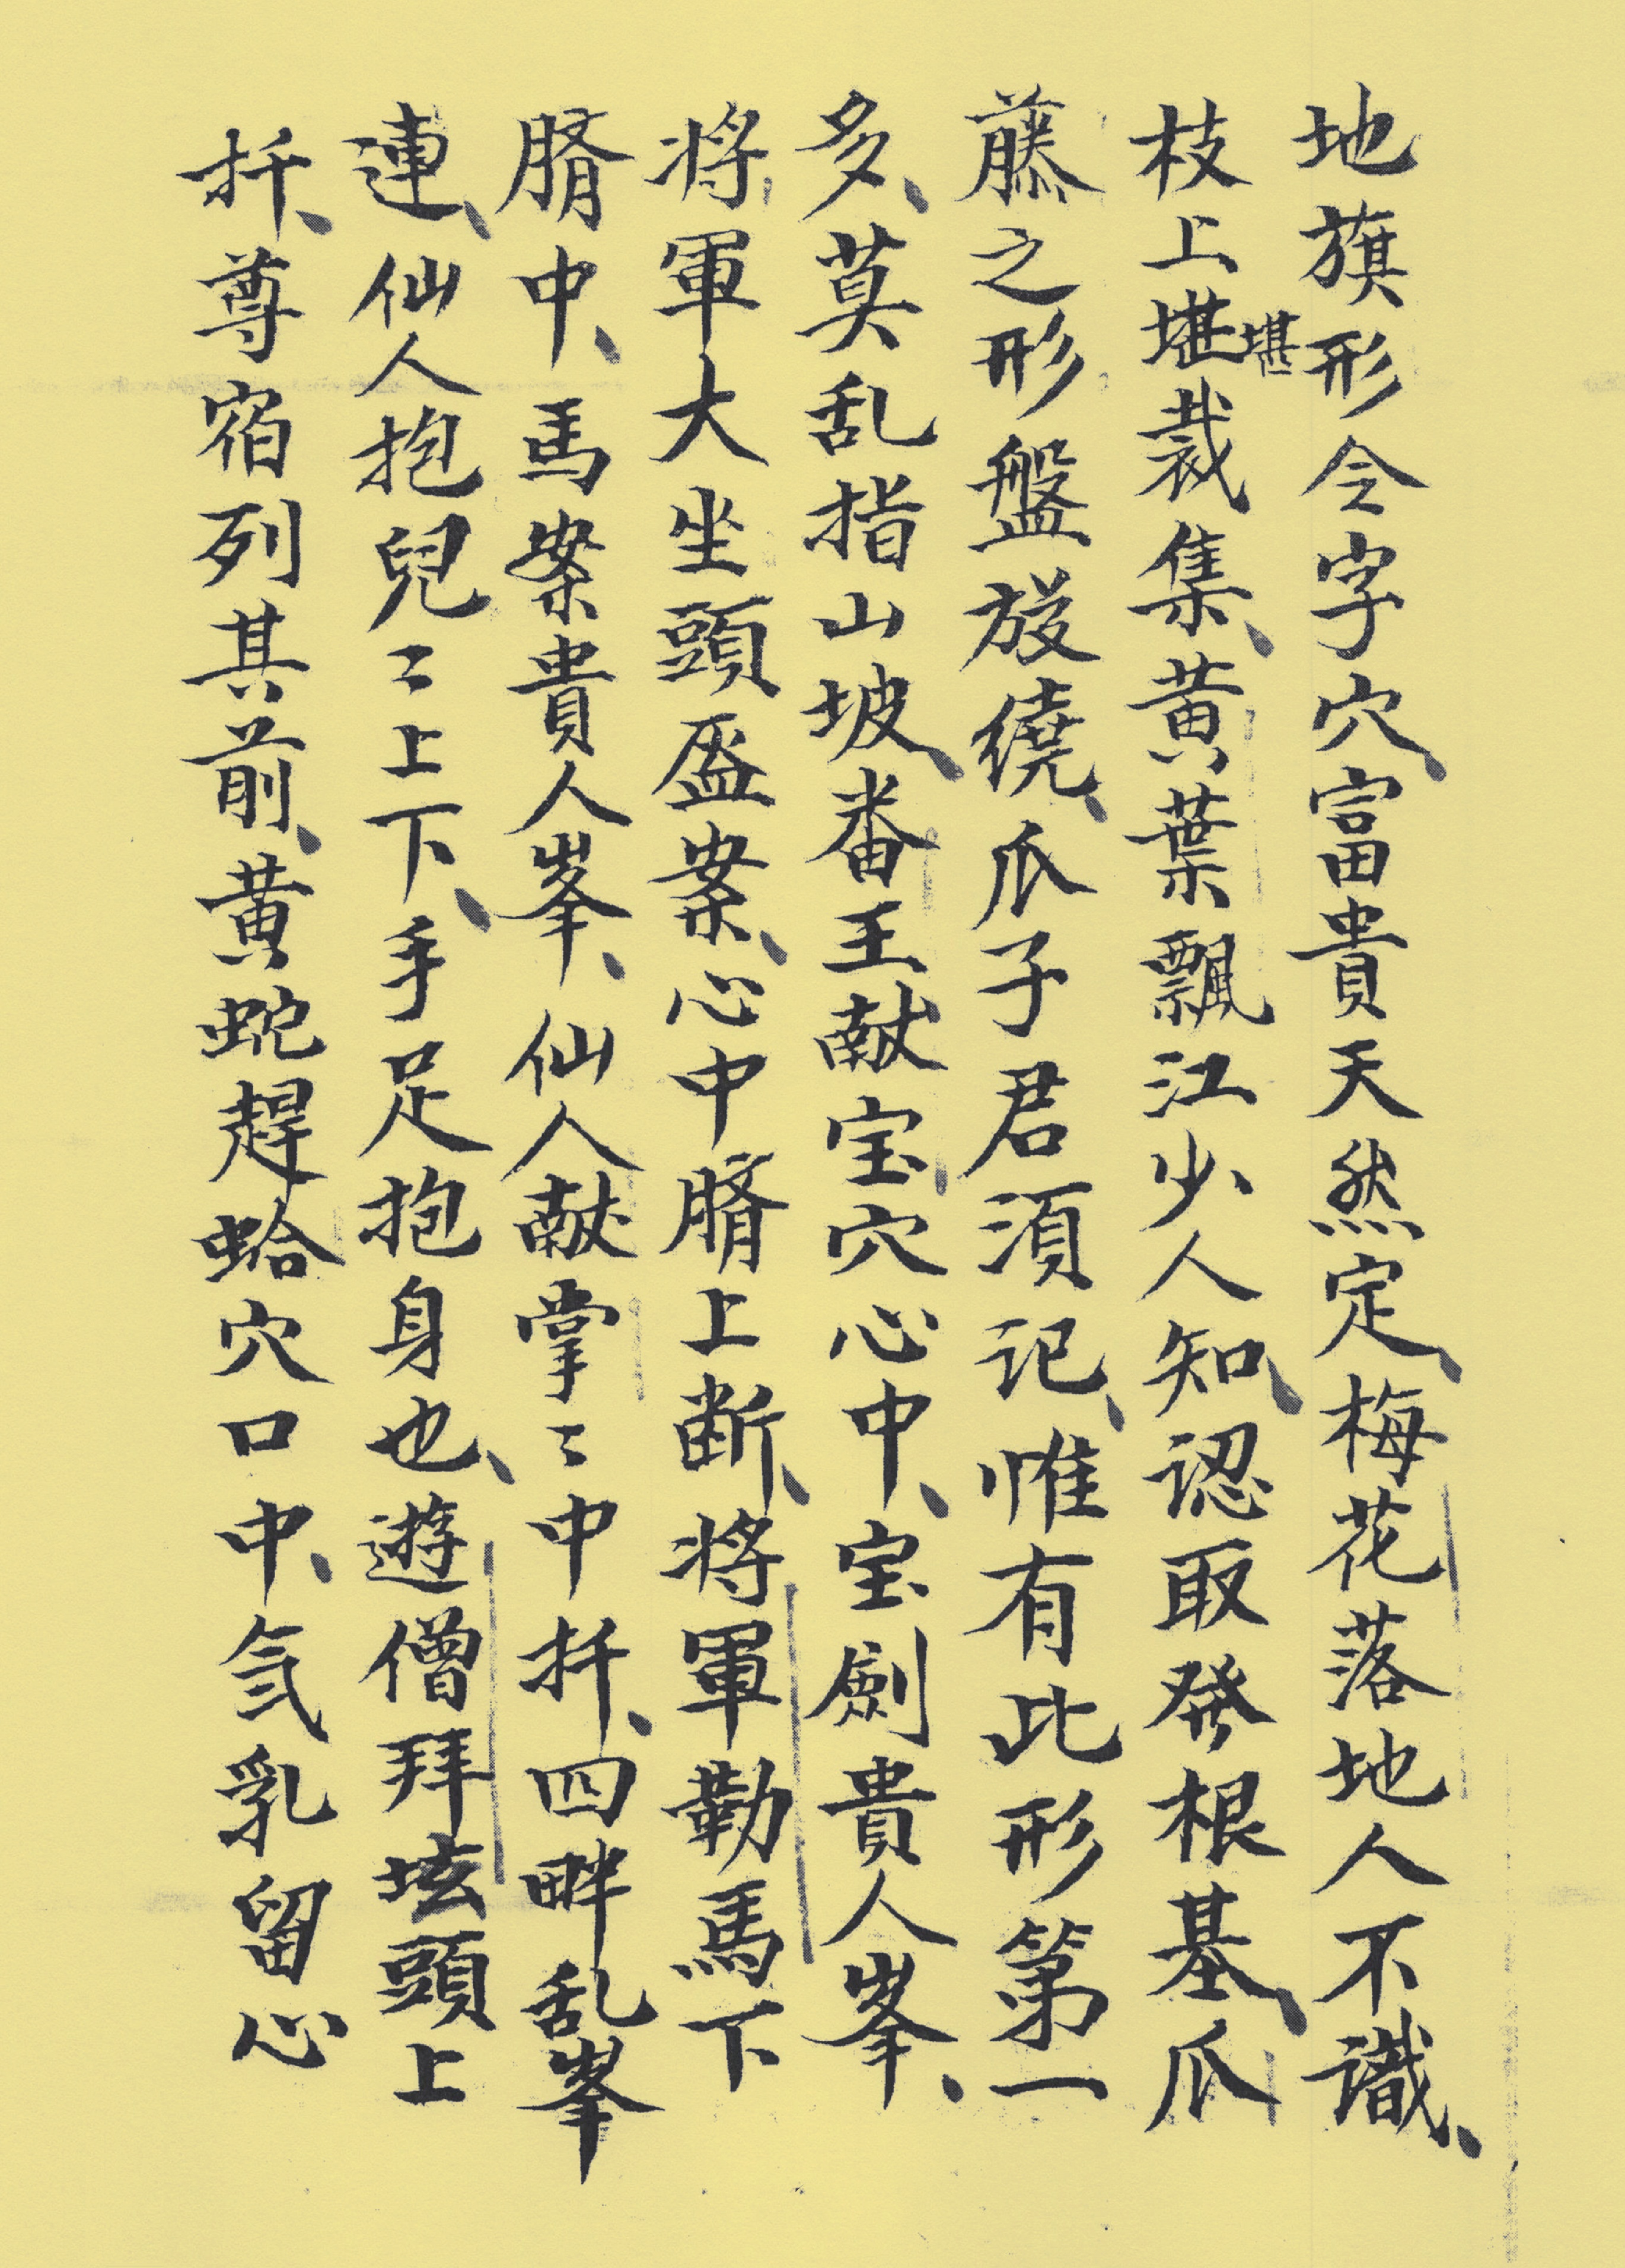 地旗形令字穴、富貴天然定、梅花落地人不識、
枝上堪堪裁集、黄葉飄江少人知、認取発根基、瓜
藤之形盤旋繞、瓜子君須记、惟有此形第一
多、莫乱指山坡、番王献宝穴心中、宝劍貴人峯、
将軍大坐頭盔案、心中臍上断、将軍勒馬下
臍中、馬案貴人峯、仙人献掌〻中扦、四畔乱峯
連、仙人抱兒〻上下、手足抱身也、遊僧拜坛頭上
扦、尊宿列其前、黄蛇趕蛤穴口中、気乳留心